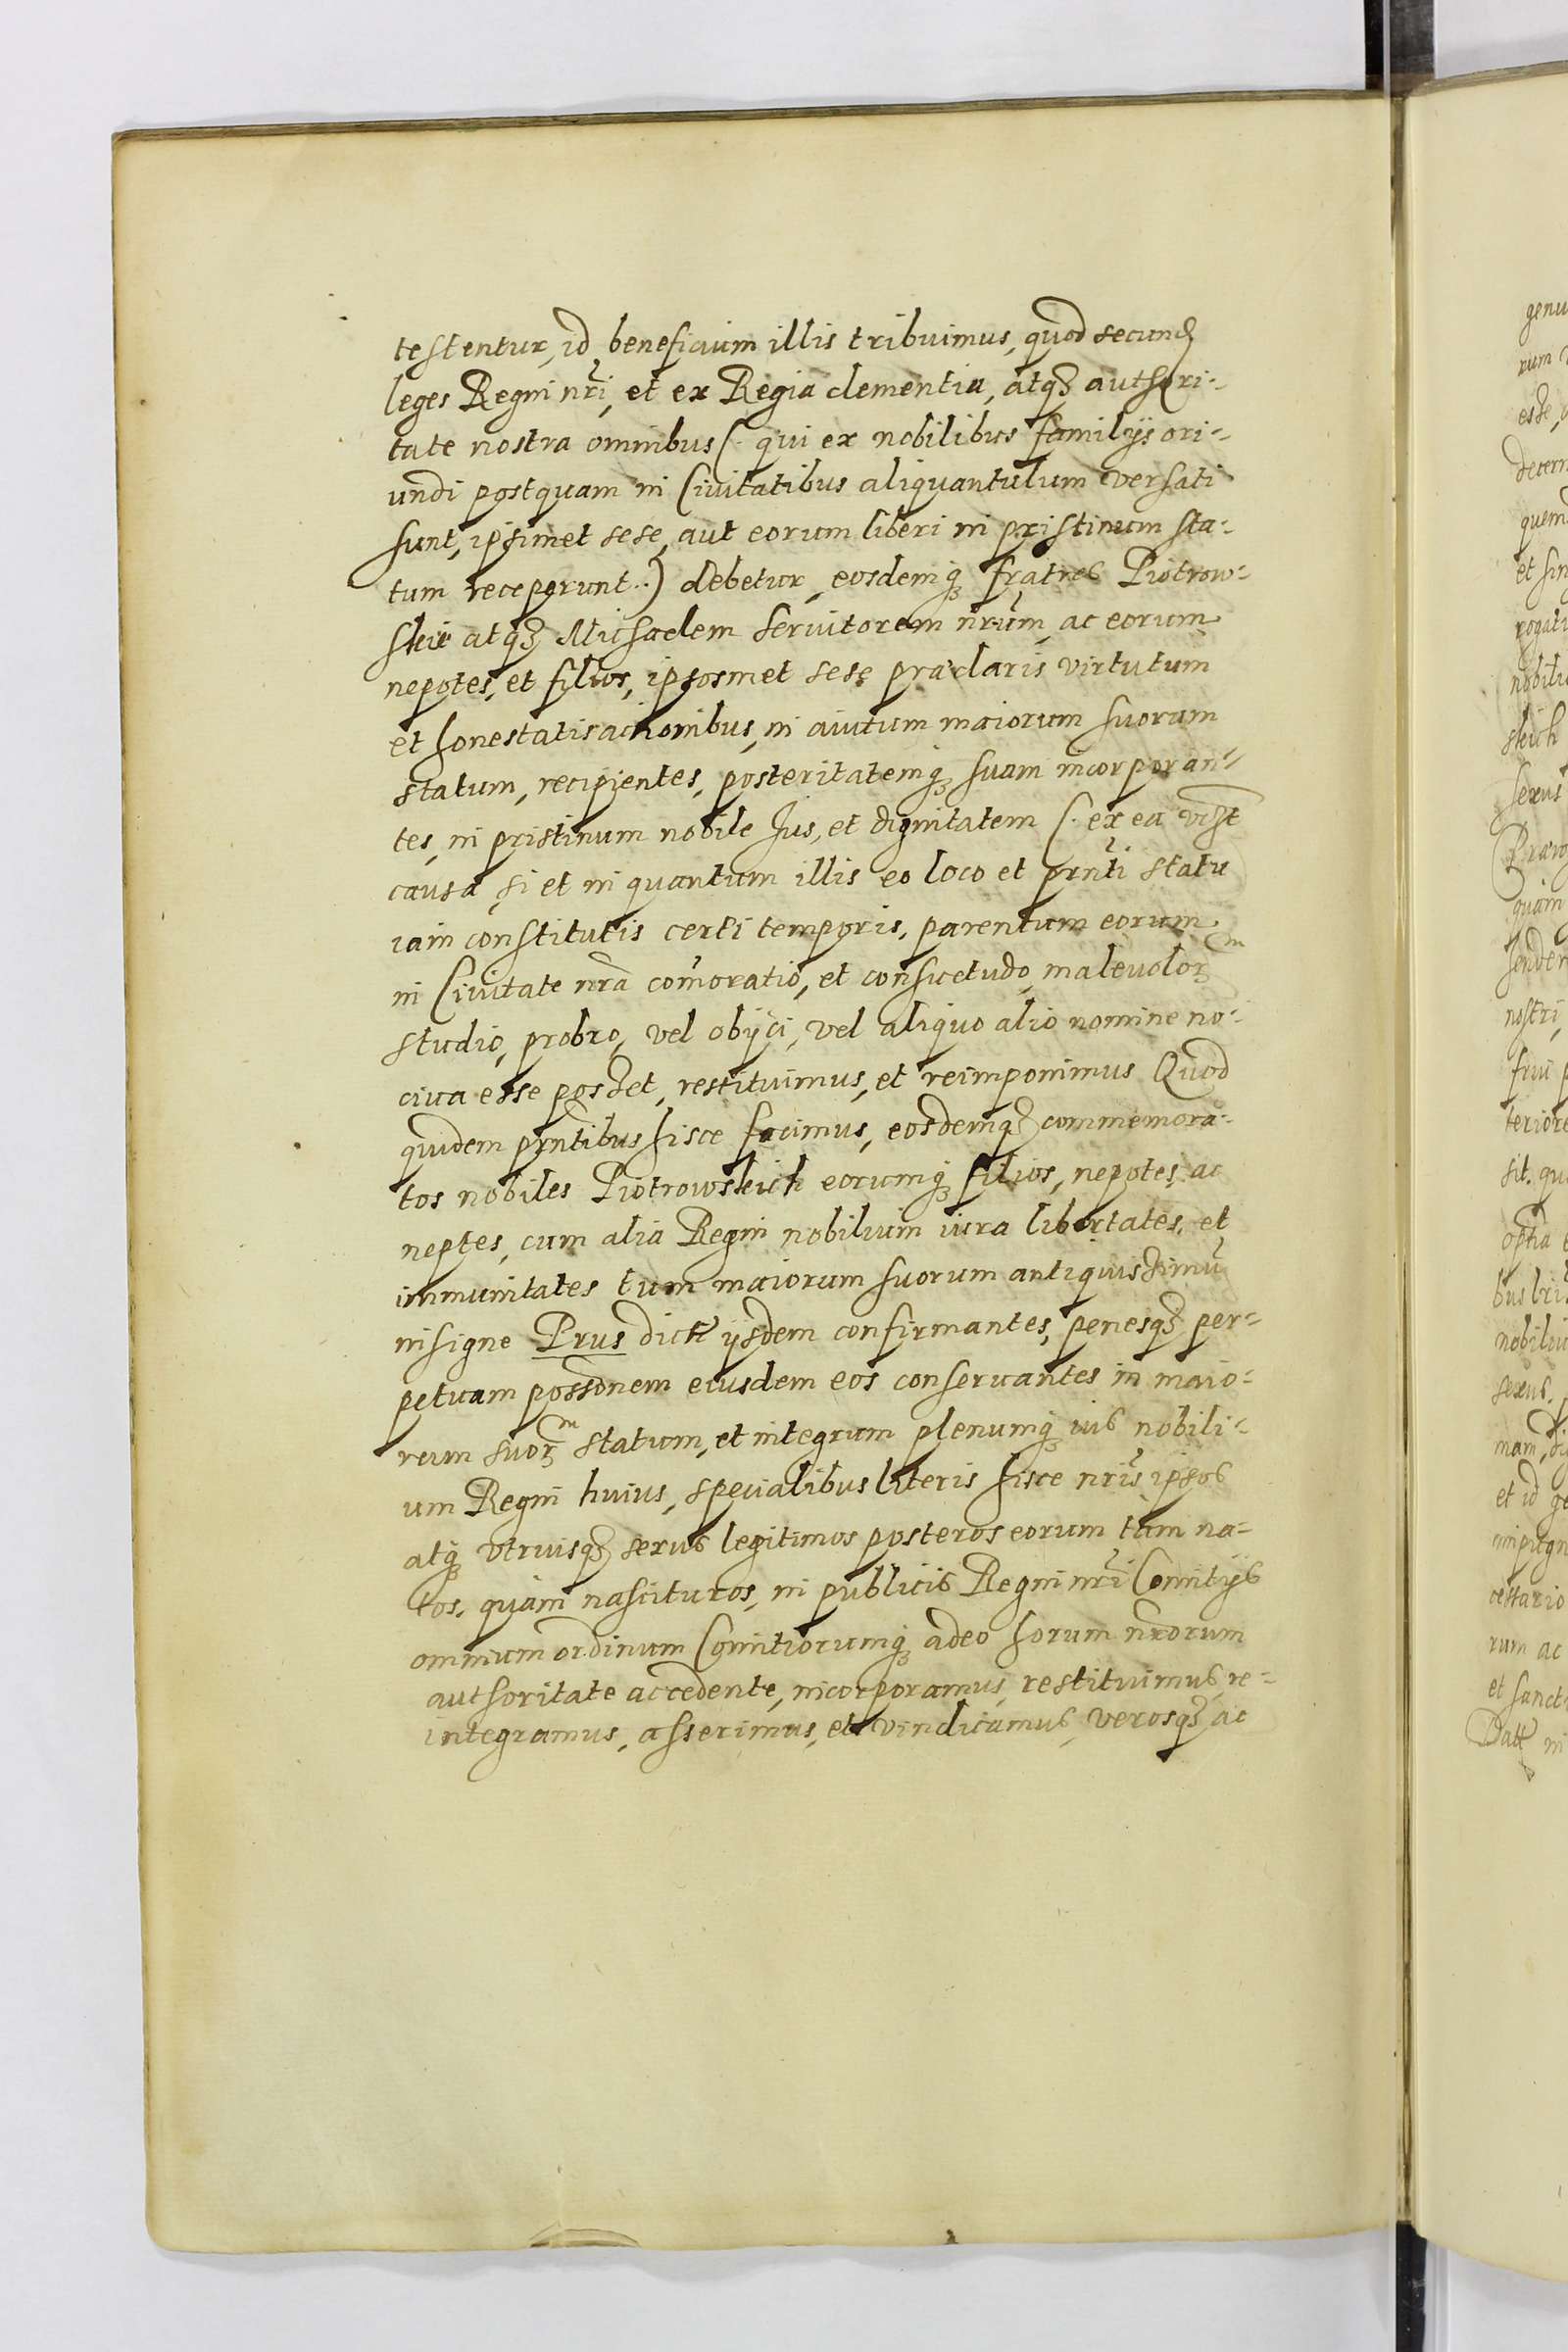 testentur, id beneficium illis tribuimus, quod secund
leges Regni nri, et ex Regia clementia, atq3 authori-
tate nostra omnibus (. qui ex nobilibus familijs ori-
undi postquam in Civitatibus aliquantulum versati
sunt, ipsimet sese, aut eorum liberi in pristinum sta-
tum receperunt .) debetur, eosdemq3 fratres Piotrow-
skie atq3 Michaelem servitorem nrum, ac eorum
nepotes, et filios, ipsosmet sese praeclaris virtutum
et honestatis actionibus, in avitum maiorum suorum
statum, recipientes, posteritatemq3 suam incorporan-
tes, in pristinum nobile Jus, et dignitatem (. ex ea
causa, si et in quantum illis eo loco et prnti statu
iam constitutis certi temporis, parentum eorum
in Civitate nra comoratio, et consuetudo, malevolorm
studio, probro, vel obijci, vel aliquo alio nomine no-
civa esse posset, restituimus, et reimponimus Quod
quidem prntibus hisce facimus, eosdemq3 commemora-
tos nobiles Piotrowskich eorumq3 filios, nepotes ac
neptes, cum alia Regni nobilium iura libertates, et
immunitates tum maiorum suorum antiquissimu
insigne Prus dict ijsdem confirmantes, penesq3 per-
petuam possonem eiusdem eos conservantes in maio-
rum suorm statum, et integrum plenumq3 ius nobili-
um Regni huius, specialibus literis hisce nris ipsos
atq3 utriusq3 sexus legitimos posteros eorum tam na-
tos, quam nascituros, in publicis Regni nri Comitijs
omnium ordinum Comitiorumq3 adeo horum nrorum
authoritate accedente, incorporamus, restituimus, re-
integramus, asserimus, et vindicamus, verosq3 ac